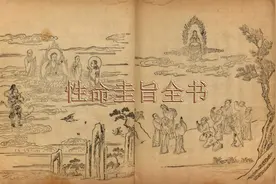 性命圭旨全书